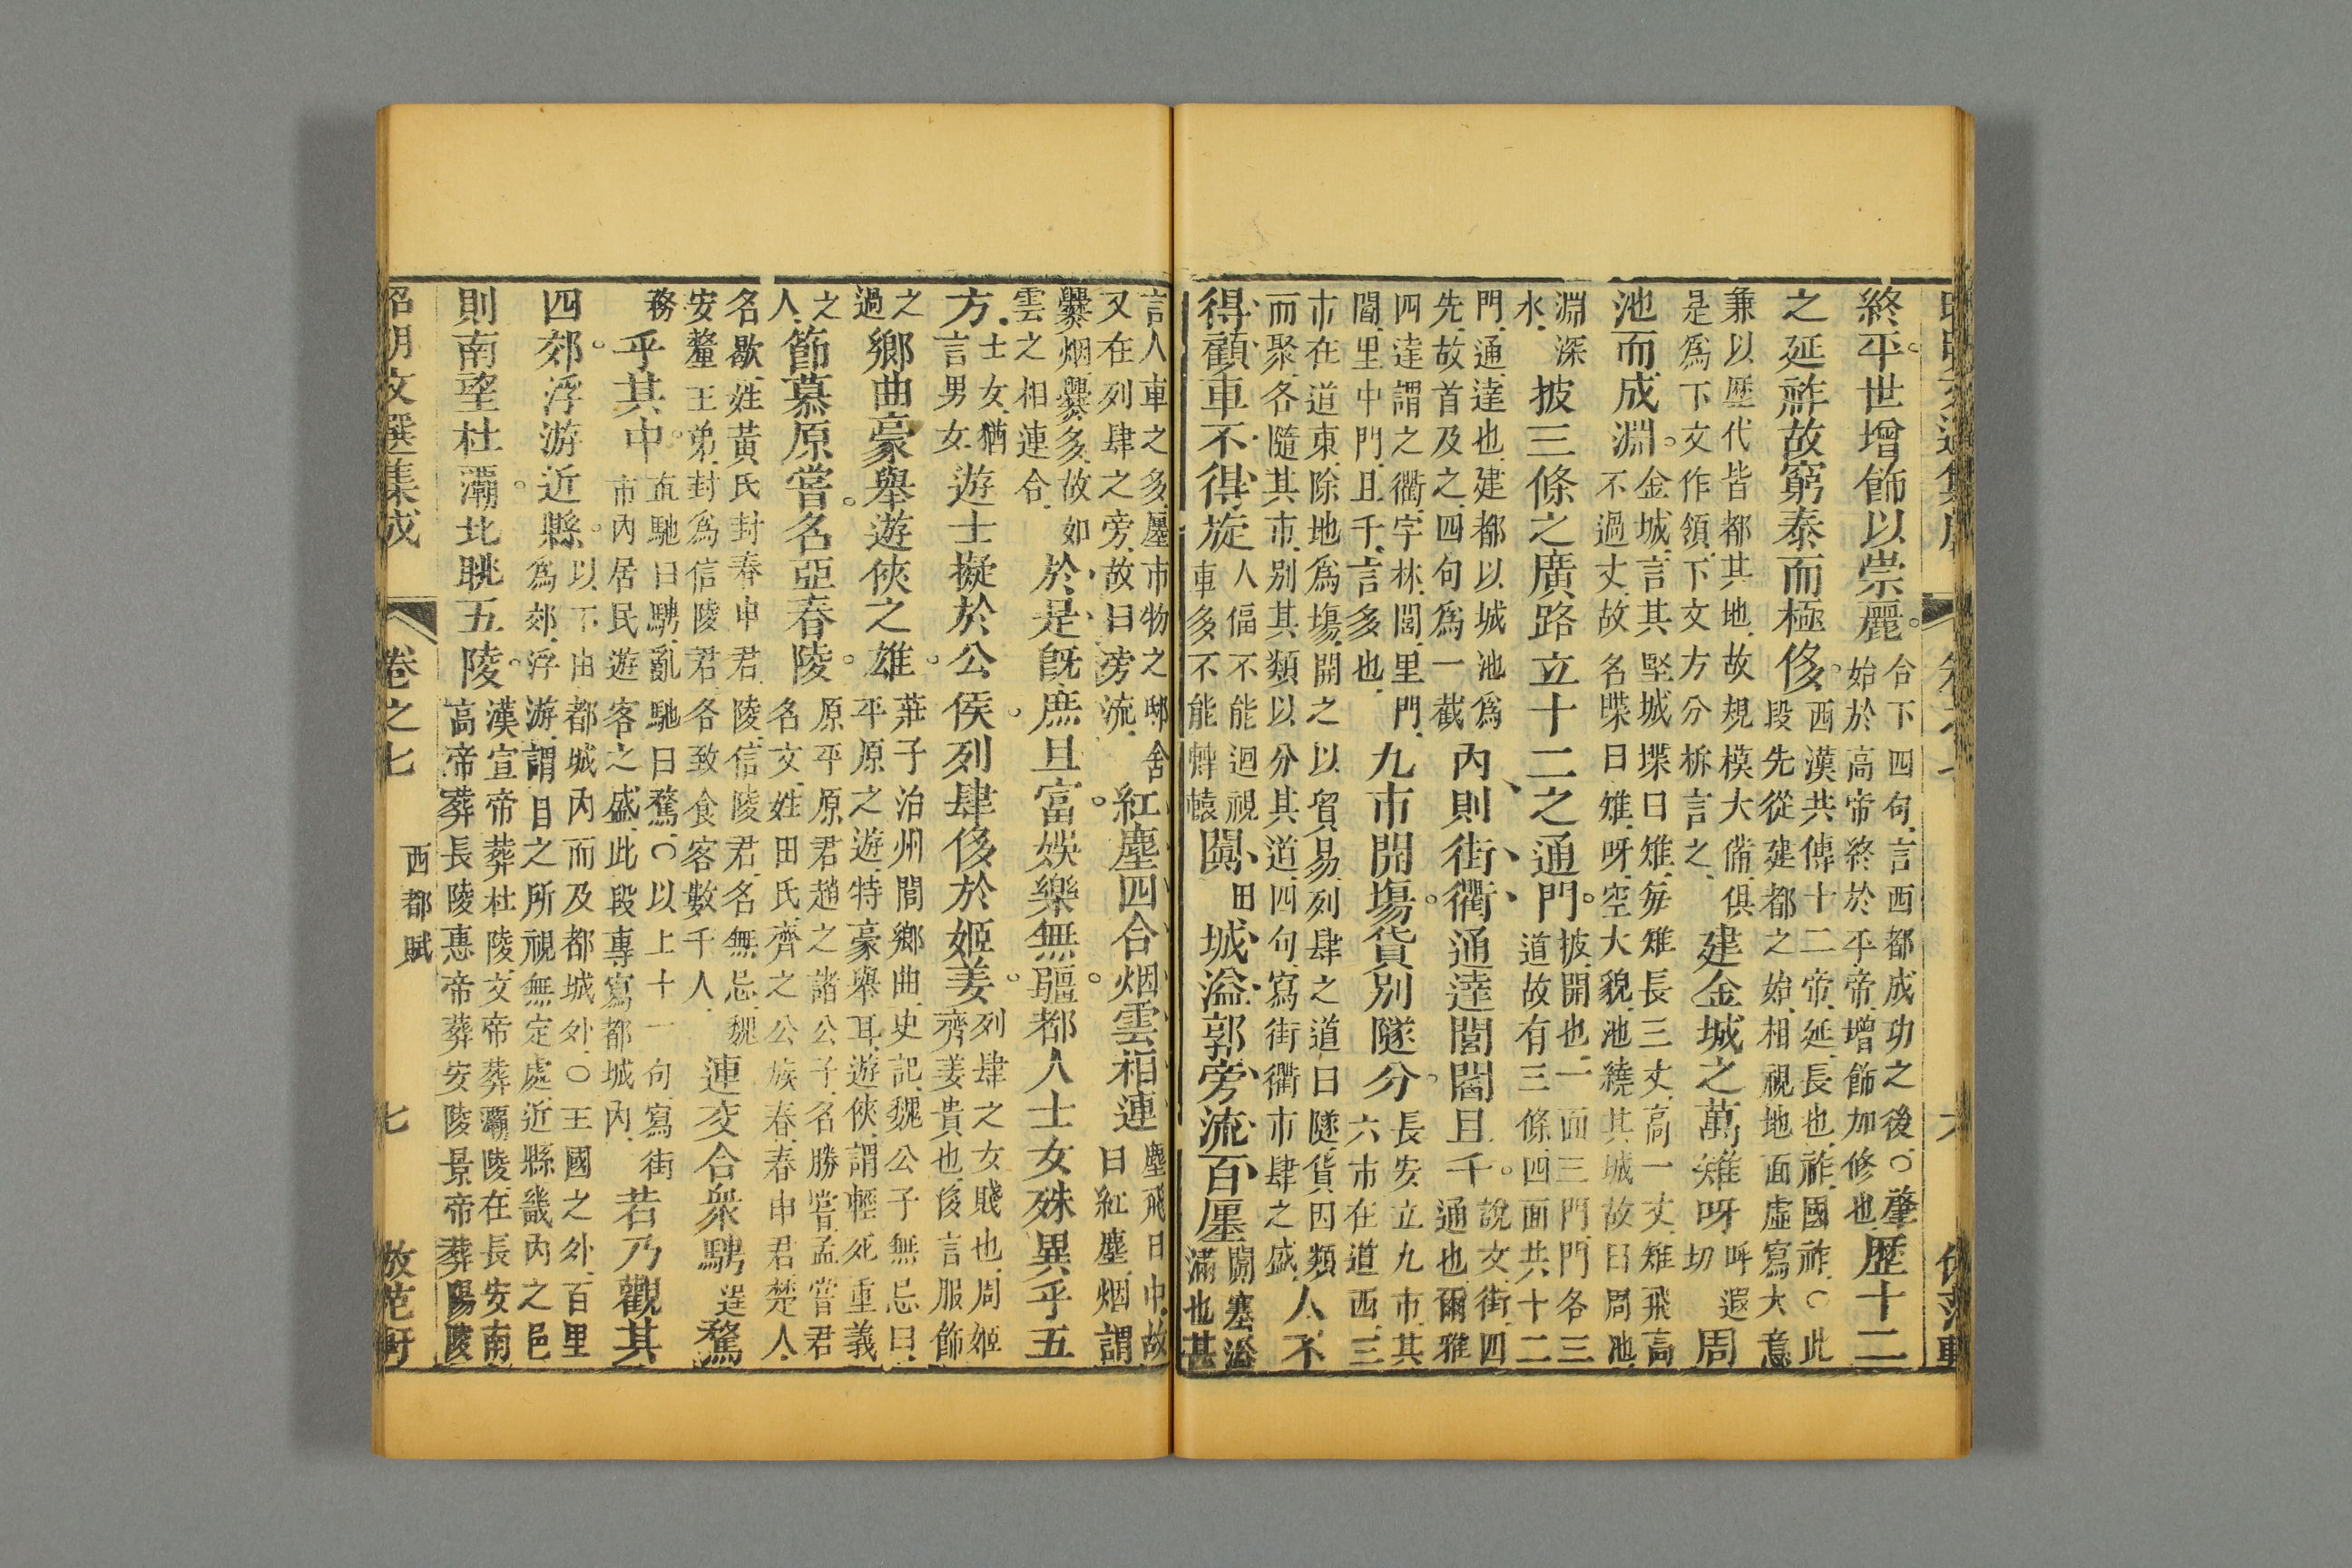 終平。世增飾以崇麗。
合下四句言西都成功之後○肇
始於高帝終於平帝增飾加修也
歷十二
之延祚故窮泰而極侈。
西漢共傳十二帝延長也祚國祚○此
段先從建都之始相視地面虛寫大意
兼以歷代皆都其地故規模大備俱
是爲下文作領下文方分柝言之
建金城之萬雉呀
呼遐
切
周
池而成淵。
金城言其堅城堞曰雉每雉長三丈高一丈雉飛高
不過丈故名堞曰雉呀空大貌池繞其城故曰周池
淵深
水
披三條之廣路立十二之通門。
披開也一面三門門各三
道故有三條四面共十二
門通達也建都以城池爲
先故首及之四句爲一截
內則街衢通達閭閻且千。
說文街四
通也爾雅
四達謂之衢字林閭里門
閻里中門且千言多也
九市開塲。貨別隧分。
長安立九市其
六市在道西三
市在道東除地爲塲開之以貿易列肆之道曰隧貨因類
而聚各隨其市別其類以分其道四句寫街衢市肆之盛
人不
得顧車不得旋
人偪不能迴視
車多不能轉轅
闐
田
城溢郭旁流百廛
闐塞溢
滿也甚
言人車之多廛市物之邸舍
又在列肆之旁故曰旁流
紅塵四合烟雲相連
塵飛日中故
曰紅塵烟謂
爨烟爨多故如
雲之相連合
於是旣庶且富。娛樂無疆。都人士女殊異乎五
方
士女猶
言男女
遊士擬於公侯。列肆侈於姬姜。
列肆之女賤也周姬
齊姜貴也侈言服飾
之
過
鄉曲豪舉遊俠之雄。
莊子治州閭鄉曲史記魏公子無忌曰
平原之遊特豪舉耳遊俠謂輕死重義
之
人
節慕原嘗。名亞春陵。
原平原君趙之諸公子名勝嘗孟嘗君
名文姓田氏齊之公族春春申君楚人
名歇姓黃氏封春申君陵信陵君名無忌魏
安釐王弟封爲信陵君各致食客數千人
連交合衆騁
逞
騖
務
乎其中。
直馳曰騁亂馳曰騖○以上十一句寫街
市內居民遊客之盛此段專寫都城內
若乃觀其
四郊。浮游近縣。
以下由都城內而及都城外○王國之外百里
爲郊浮游謂目之所視無定處近縣畿內之邑
則南望杜灞。北眺五陵。
漢宣帝葬杜陵文帝葬灞陵在長安南
高帝葬長陵惠帝葬安陵景帝葬陽陵
昭明文選集成
卷之七
西都賦
七